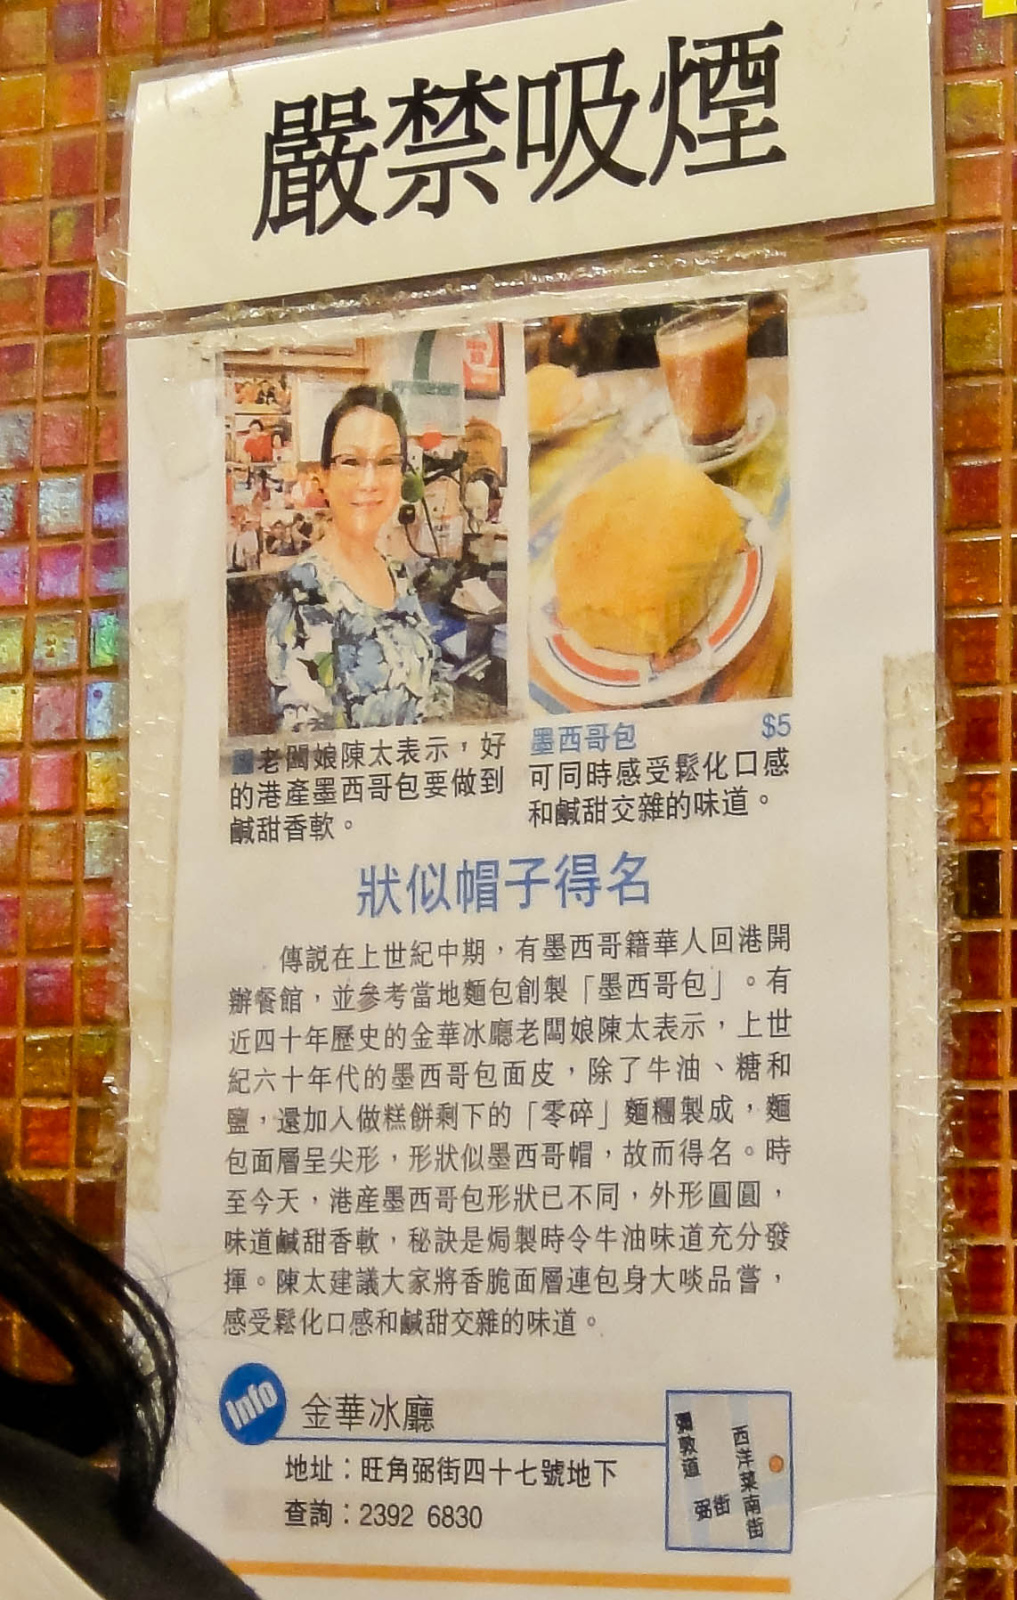 嚴禁吸煙
老闆娘陳太表示，好
的港產墨西哥包要做到
鹹甜香軟。
墨西哥包 $5
可同時感受鬆化口感
和鹹甜交雜的味道。
狀似帽子得名
傳說在上世紀中期，有墨西哥籍華人回港開
辦餐館，並參考當地麵包創製「墨西哥包」。有
近四十年歷史的金華冰廳老闆娘陳太表示，上世
紀六十年代的墨西哥包面皮，除了牛油、糖和
鹽，還加入做糕餅剩下的「零碎」麵糰製成，麵
包面層呈尖形，形狀似墨西哥帽，故而得名。時
至今天，港產墨西哥包形狀已不同，外形圓圓，
味道鹹甜香軟，秘訣是焗製時令牛油味道充分發
揮。陳太建議大家將香脆面層連包身大啖品嘗，
感受鬆化口感和鹹甜交雜的味道。
Info 金華冰廳
地址：旺角弼街四十七號地下
查詢：2392 6830
彌敦道
西洋菜南街
弼街